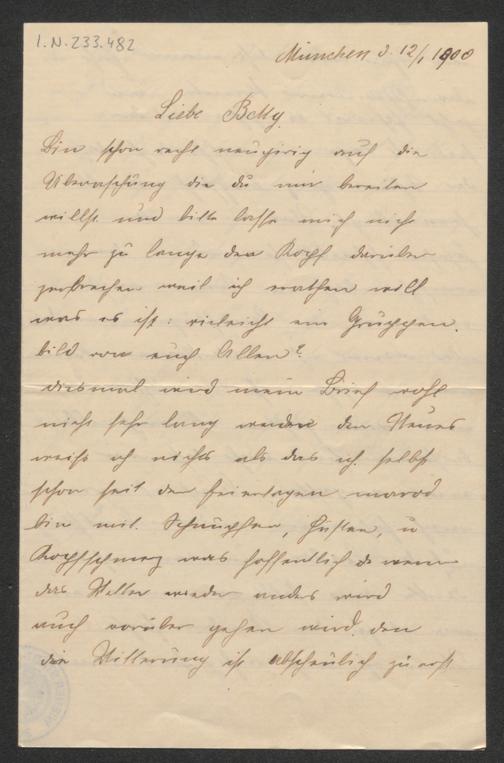 I.N.233.482
München d. 12/1 1900
Liebe Betty.
Bin schon recht neugirig auf die
Überaschung die du mir bereiten
willst und bitte lasse mich nicht
mehr zu lange den Kopf darüber
zerbrechen weil ich erathen will
was es ist: vieleicht ein Gruppen.
bild von euch Allen?
diesmal wird mein Brief wohl
nicht sehr lang werden den Neues
weiss ich nichts als das ich selbst
schon seit den feiertagen marod
bin mit Schnupfen, Husten, u
Kopfschmerz was hoffentlich wenn
das Wetter wieder anders wird
auch vorüber gehen wird. den
die Witterung ist abscheulich zu erst